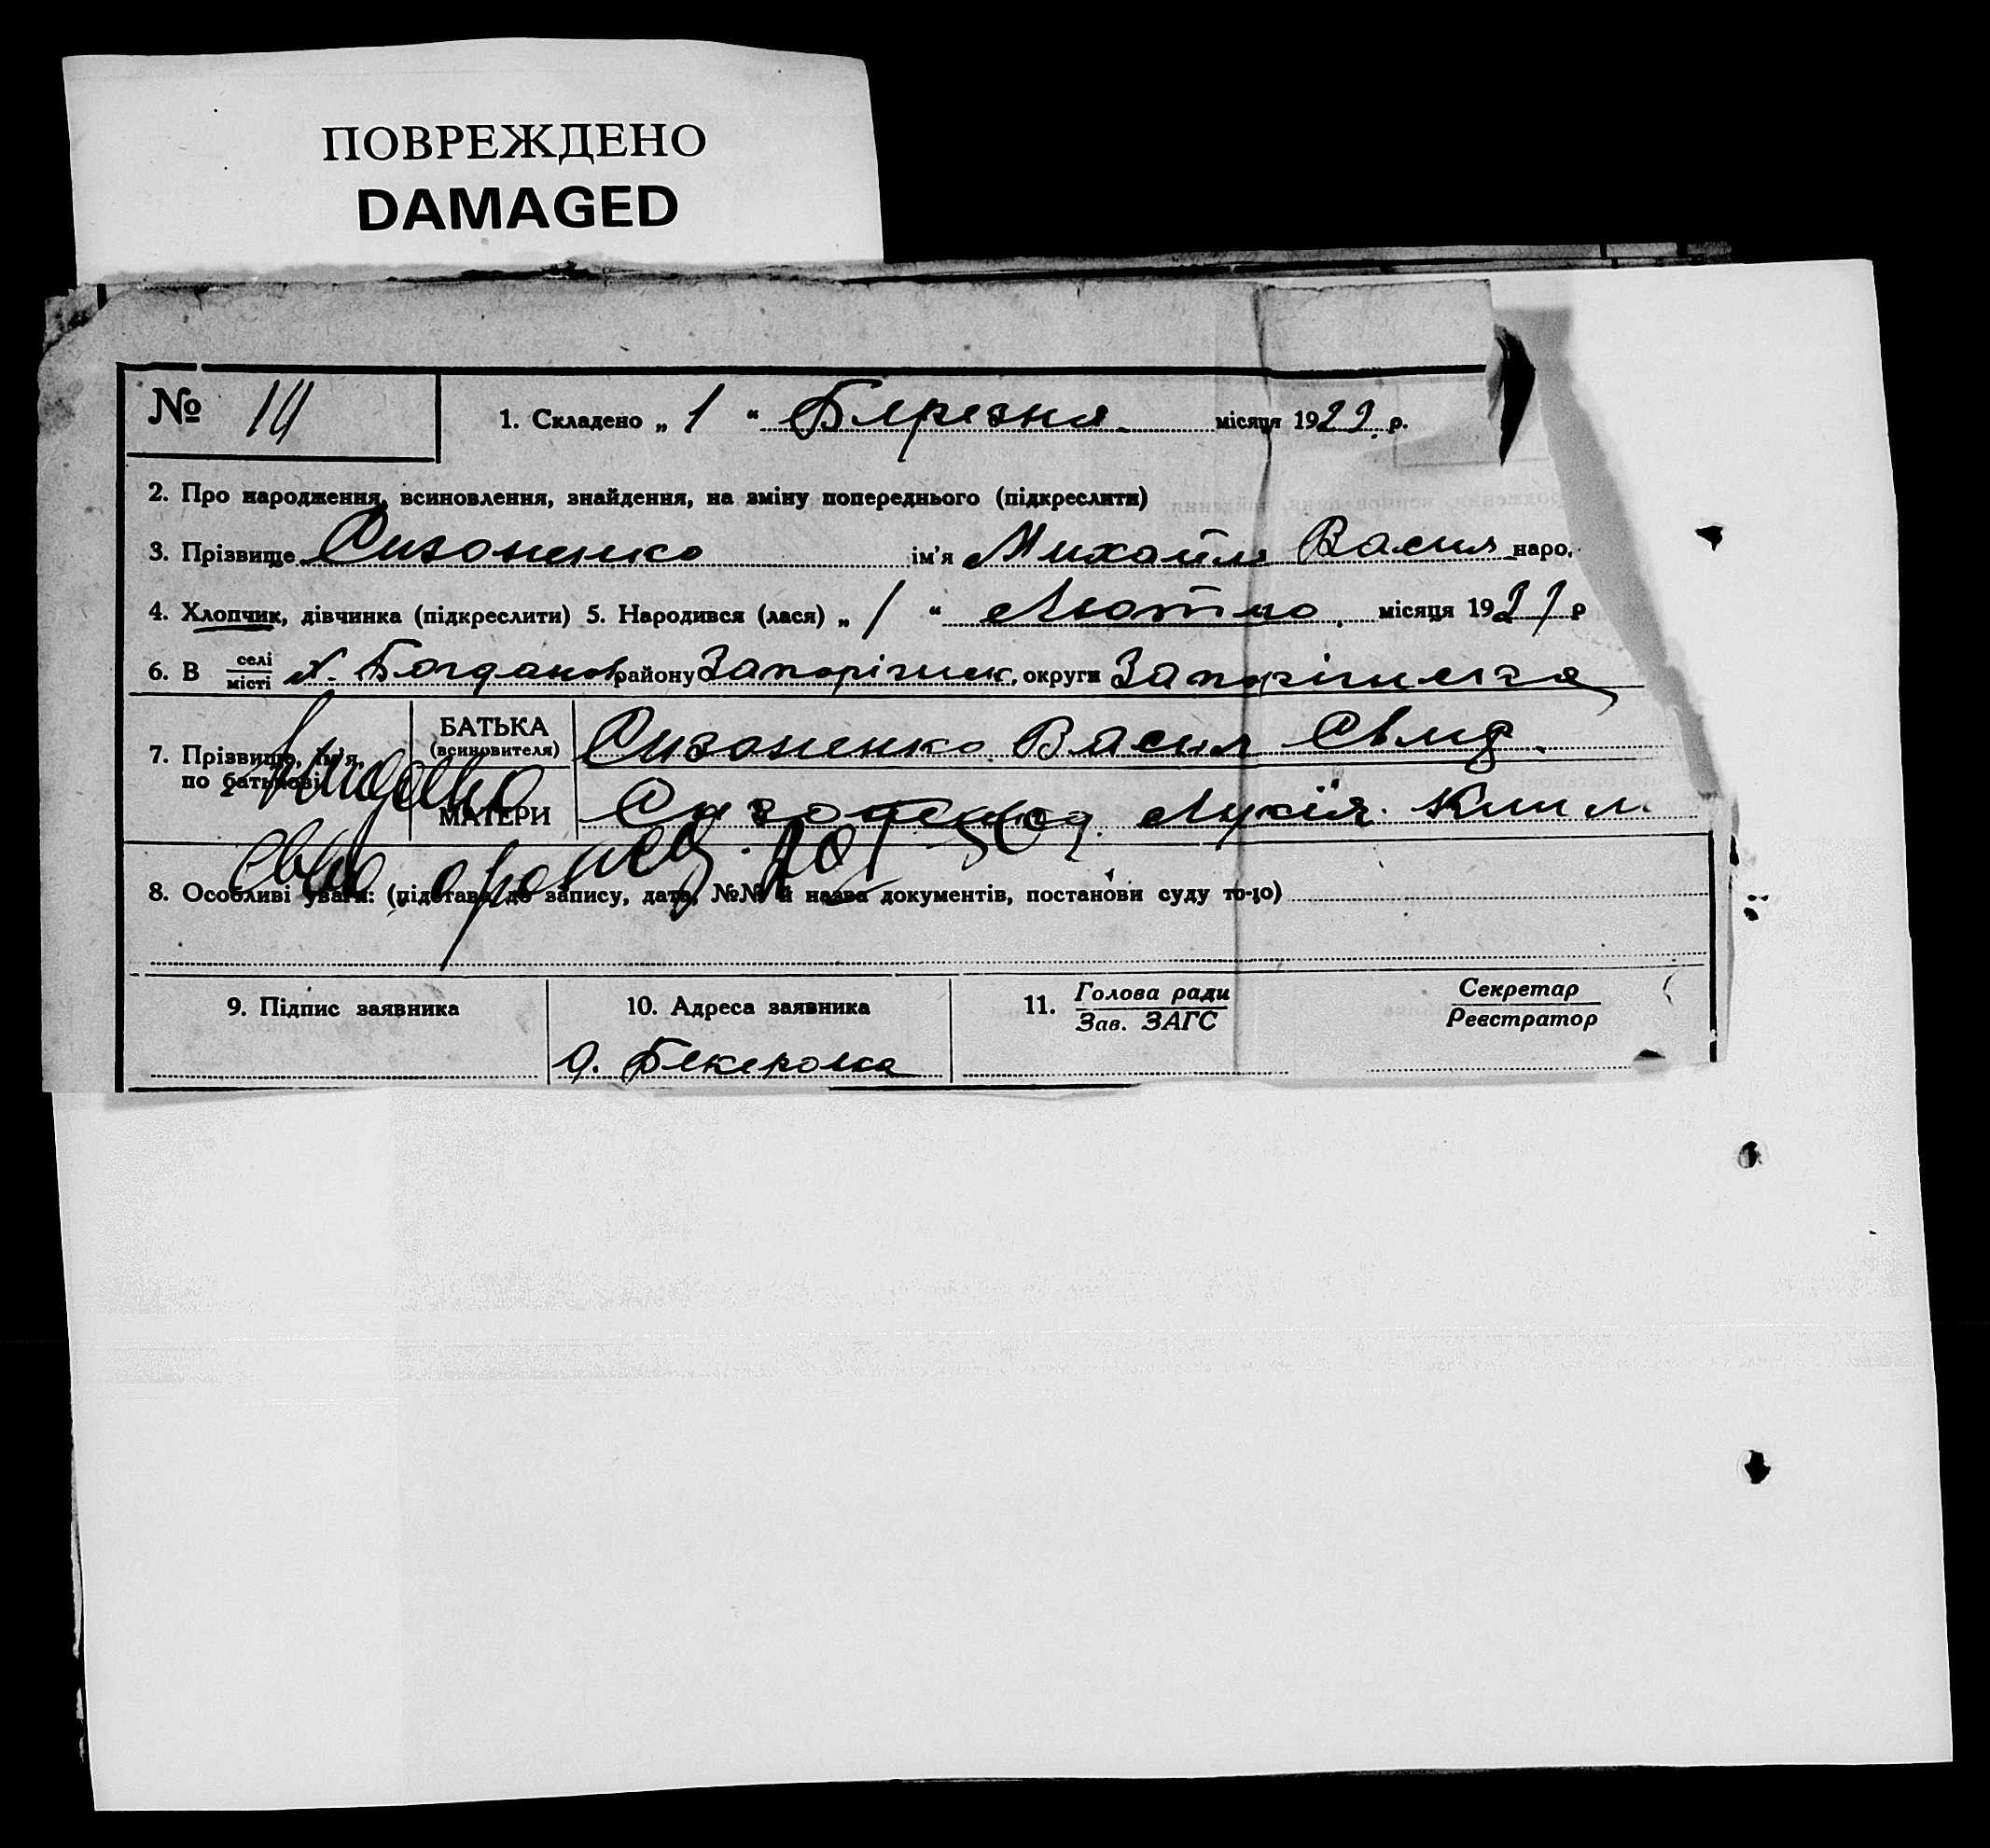 ПОВРЕЖДЕНО
DAMAGED
№ 14
1. Складено „ 1 “ Бярезня місяця 1929 р.
2. Про народження, всиновлення, знайдення, на зміну попереднього (підкреслити)
3. Прізвище Сизоненко ім'я Михайло Васил наро.
4. Хлопчик, дівчинка (підкреслити) 5. Народився (лася) „ 1 “ Лютого місяця 1929 р
6. В селі місті х. Богданов району Запоріжск. округи
7. Прізвище, ім'я, по батькові
БАТЬКА (всиновителя) Сизоненко Васил
МАТЕРИ Сизоненко Лукія
8. Особливі уваги: (підстава до запису, дата, №№ й назва документів, постанови суду то-що)
9. Підпис заявника
10. Адреса заявника
11. Голова ради Зав. ЗАГС
Секретар Реєстратор